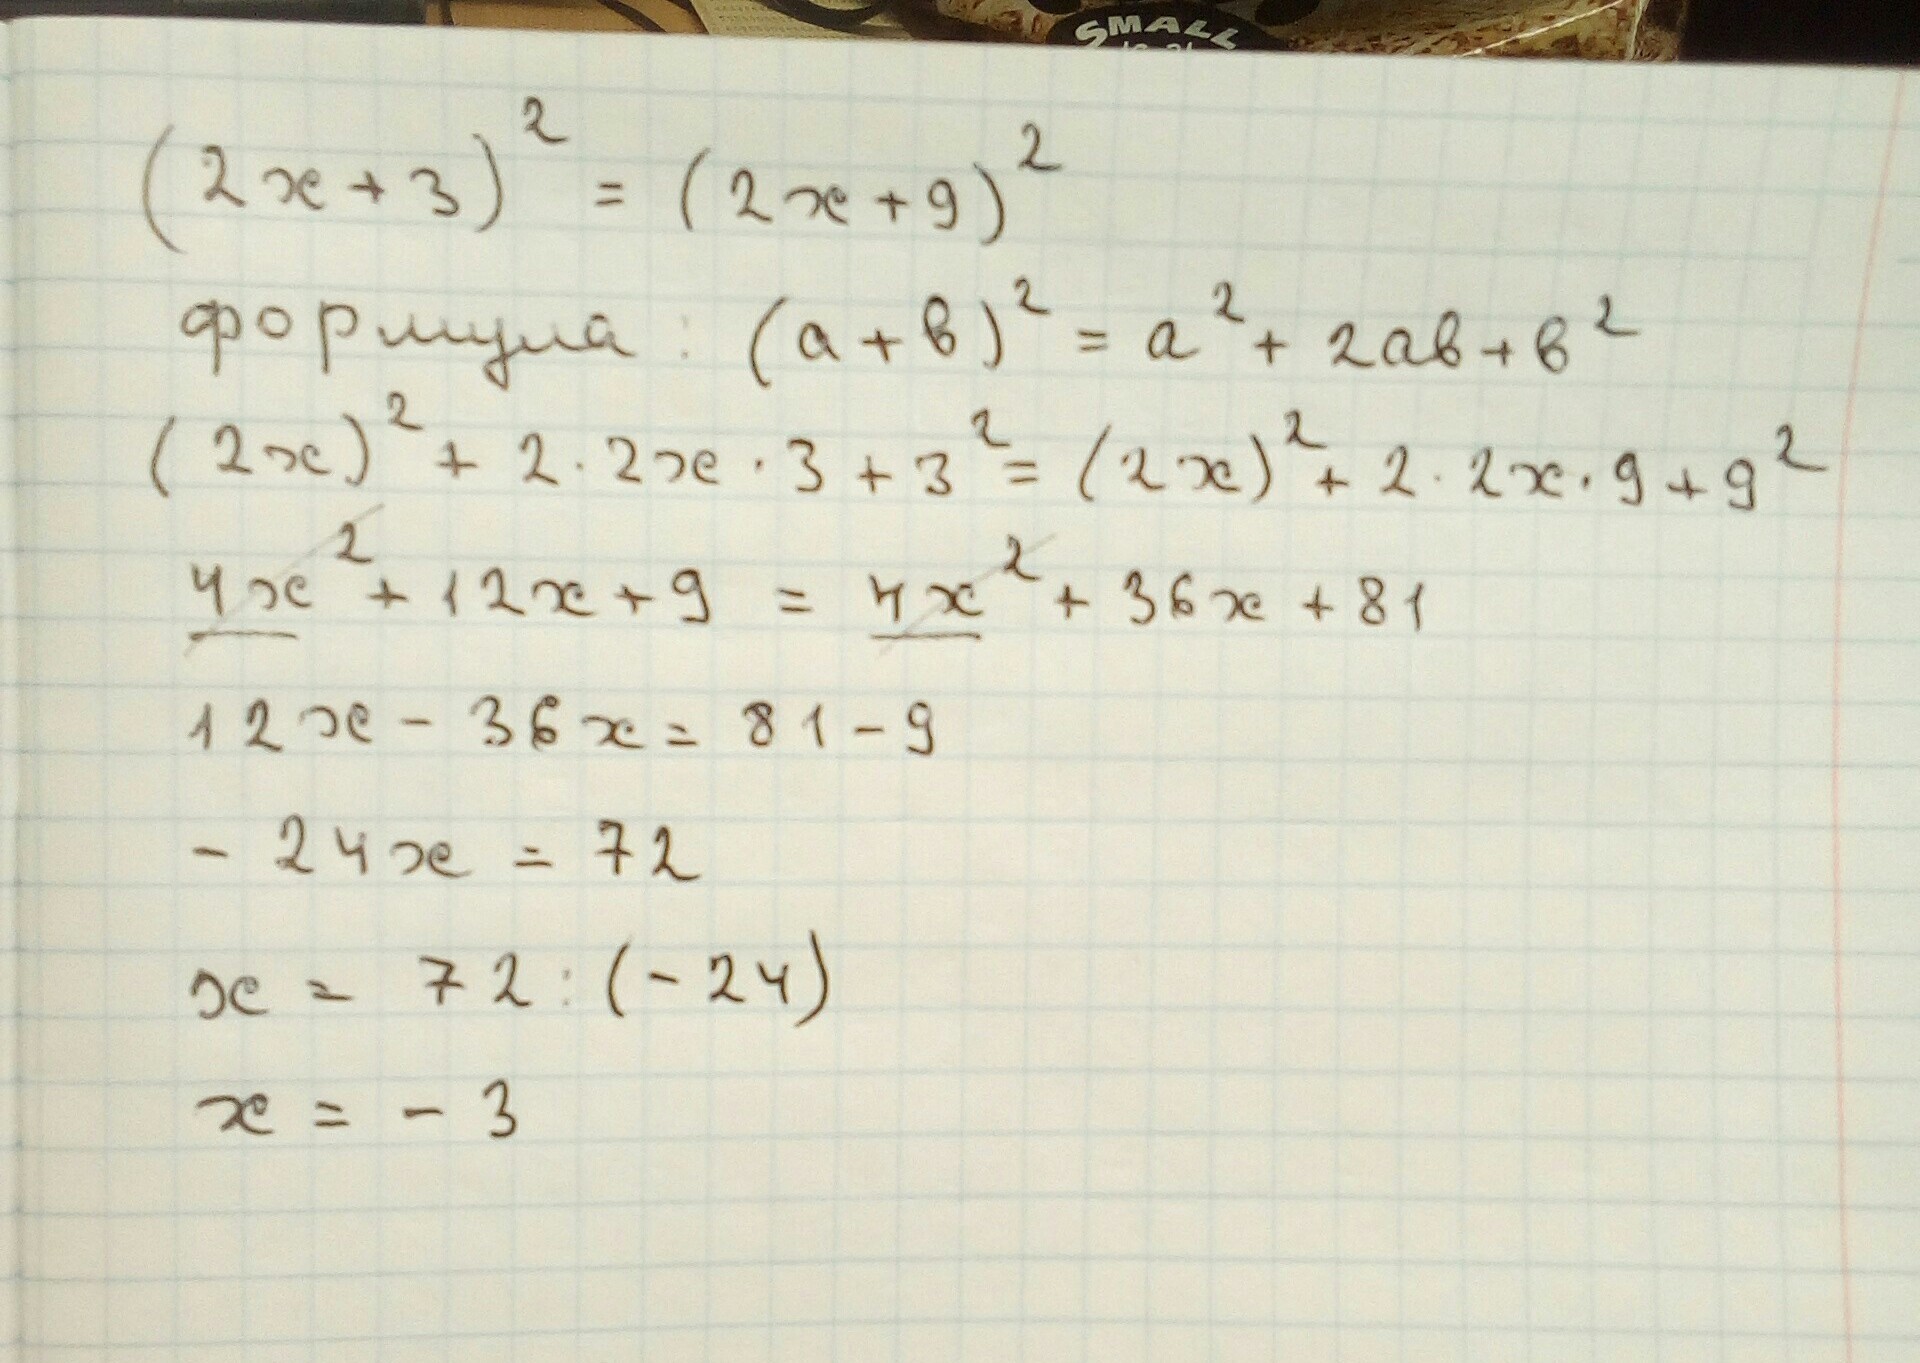 SMALL
(2x+3)² = (2x+9)²
формула : (а+в)² = а² + 2ав + в²
(2x)² + 2·2x·3+3² = (2x)² + 2·2x·9+9²
4x² + 12x+9 = 4x² + 36x+81
12x - 36x = 81-9
- 24x = 72
x = 72:(-24)
x = - 3